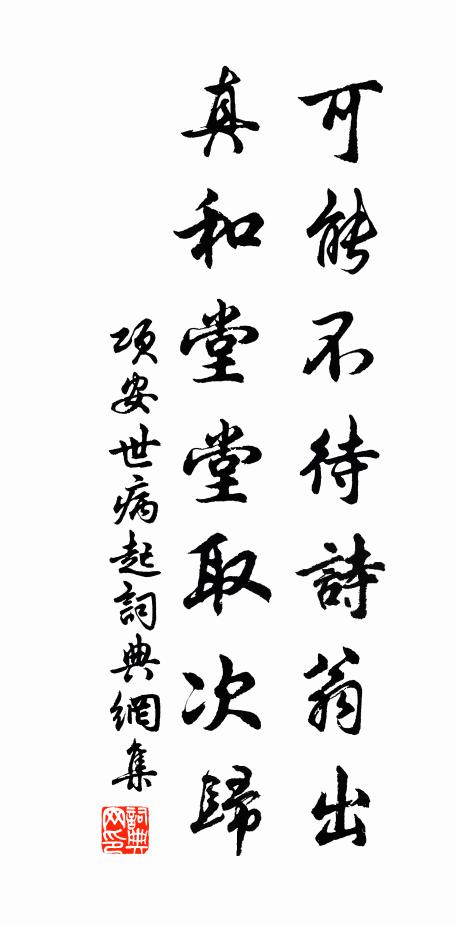 可能不待詩翁出
真和堂堂取次歸
項安世病起詞典網集
詞典网印